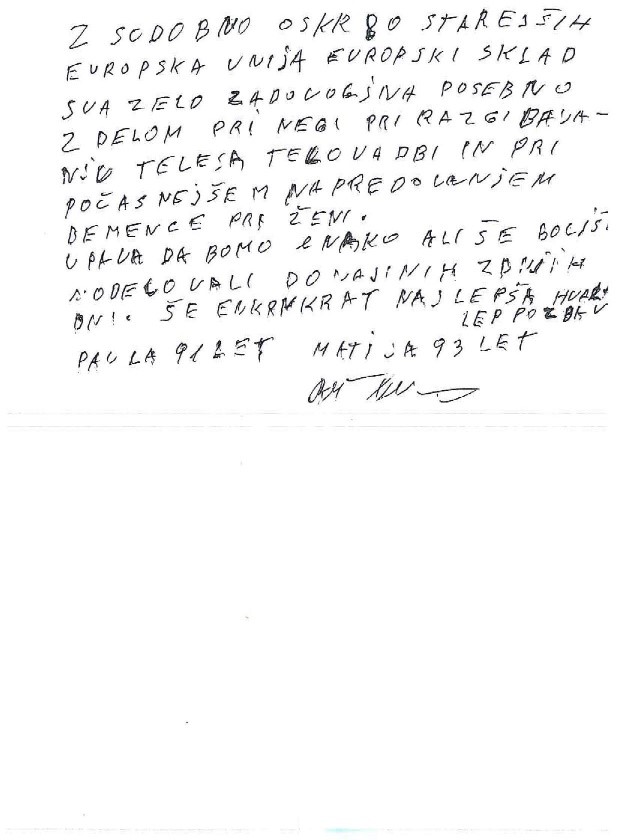 Z SODOBNO OSKRBO STAREJŠIH
EUROPSKA UNIJA EUROPSKI SKLAD
SVA ZELO ZADOVOGJNA POSEBNO
Z DELOM PRI NEGI PRI RAZGIBAVA-
NJU TELESA TELOVADBI IN PRI
POČASNEJŠEM NAPREDOVANJEM
DEMENCE PRI ŽENI.
UPAVA DA BOMO ENAKO ALI ŠE BOLJŠE
SODELOVALI DO NAJINIH ZADNJIH
DNI. ŠE ENKRMKRAT NAJLEPŠA HVALA
LEP POZDRAV
PAVLA 91 LET MATIJA 93 LET